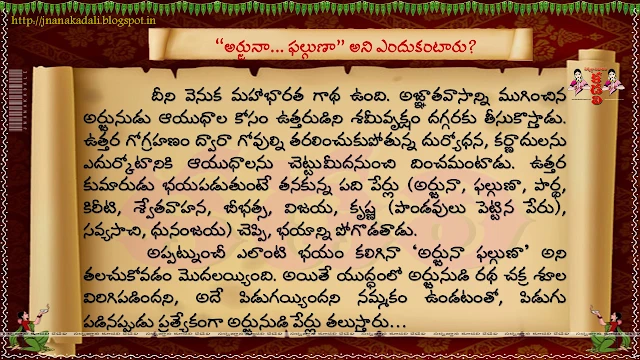 http://jnanakadali.blogspot.in
“అర్జునా... ఫల్గుణా” అని ఎందుకంటారు?
దీని వెనుక మహాభారత గాథ ఉంది. అజ్ఞాతవాసాన్ని ముగించిన
అర్జునుడు ఆయుధాల కోసం ఉత్తరుడిని శమీవృక్షం దగ్గరకు తీసుకొస్తాడు.
ఉత్తర గోగ్రహణం ద్వారా గోవుల్ని తరలించుకుపోతున్న దుర్యోధన, కర్ణాదులను
ఎదుర్కోటానికి ఆయుధాలను చెట్టుమీదనుంచి దించమంటాడు. ఉత్తర
కుమారుడు భయపడుతుంటే తనకున్న పది పేర్లు (అర్జునా, ఫల్గుణా, పార్థ,
కిరీటి, శ్వేతవాహన, బీభత్స, విజయ, కృష్ణ (పాండవులు పెట్టిన పేరు),
సవ్యసాచి, ధునంజయ) చెప్పి, భయాన్ని పోగొడతాడు.
అప్పట్నుంచీ ఎలాంటి భయం కలిగినా ‘అర్జునా ఫల్గుణా’ అని
తలచుకోవడం మొదలయ్యింది. అయితే యుద్ధంలో అర్జునుడి రథ చక్ర శూల
విరిగిపడిందని, అదే పిడుగయ్యిందని నమ్మకం ఉండటంతో, పిడుగు
పడినప్పుడు ప్రత్యేకంగా అర్జునుడి పేర్లు తలుస్తారు...